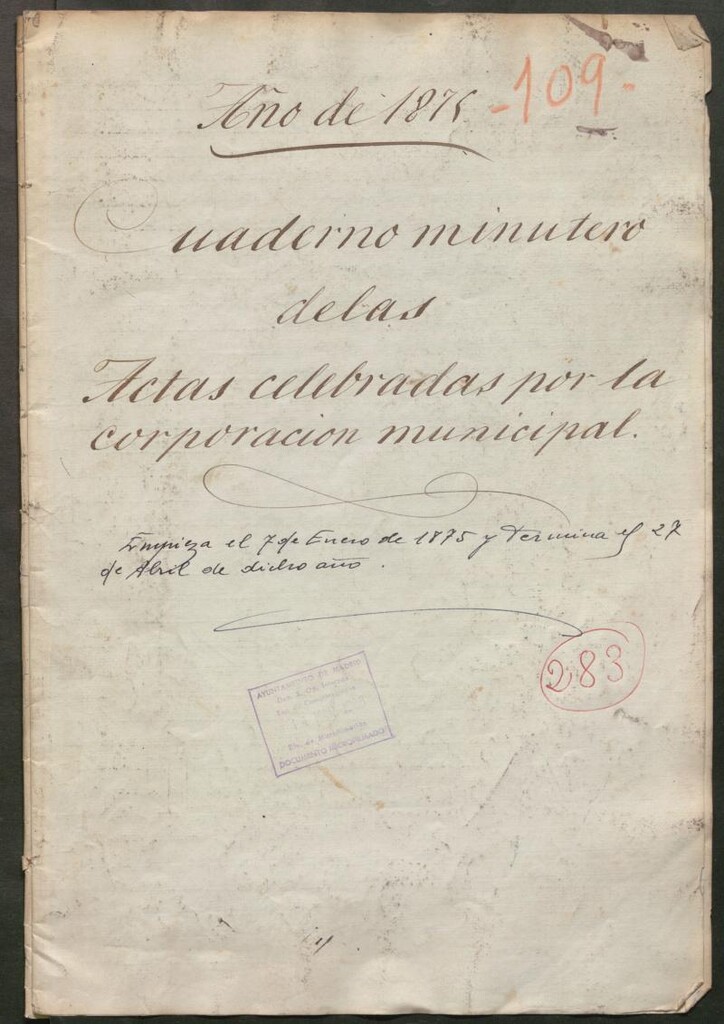 Año de 1875 -109-
Cuaderno minutero
de las
Actas celebradas por la
corporacion municipal.
Empieza el 7 de Enero de 1875 y Termina el 27
de Abril de dicho año.
283
AYUNTAMIENTO DE MADRID
DOCUMENTO MICROFILMADO